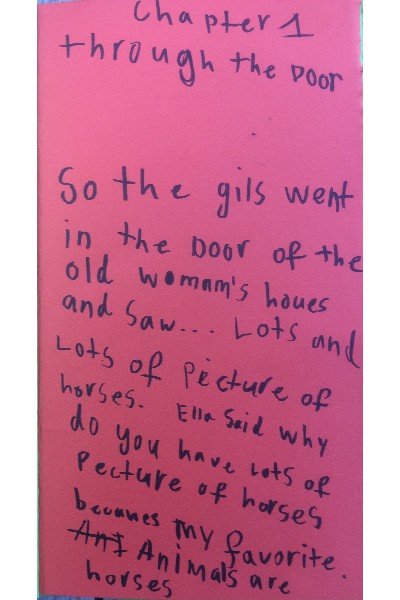 Chapter 1
through the Door
So the gils went
in the Door of the
old womam's houes
and saw... Lots and
Lots of Picture of
horses. Ella said why
do you have Lots of
Pecture of horses
becaues my favorite.
Ani Animals are
horses